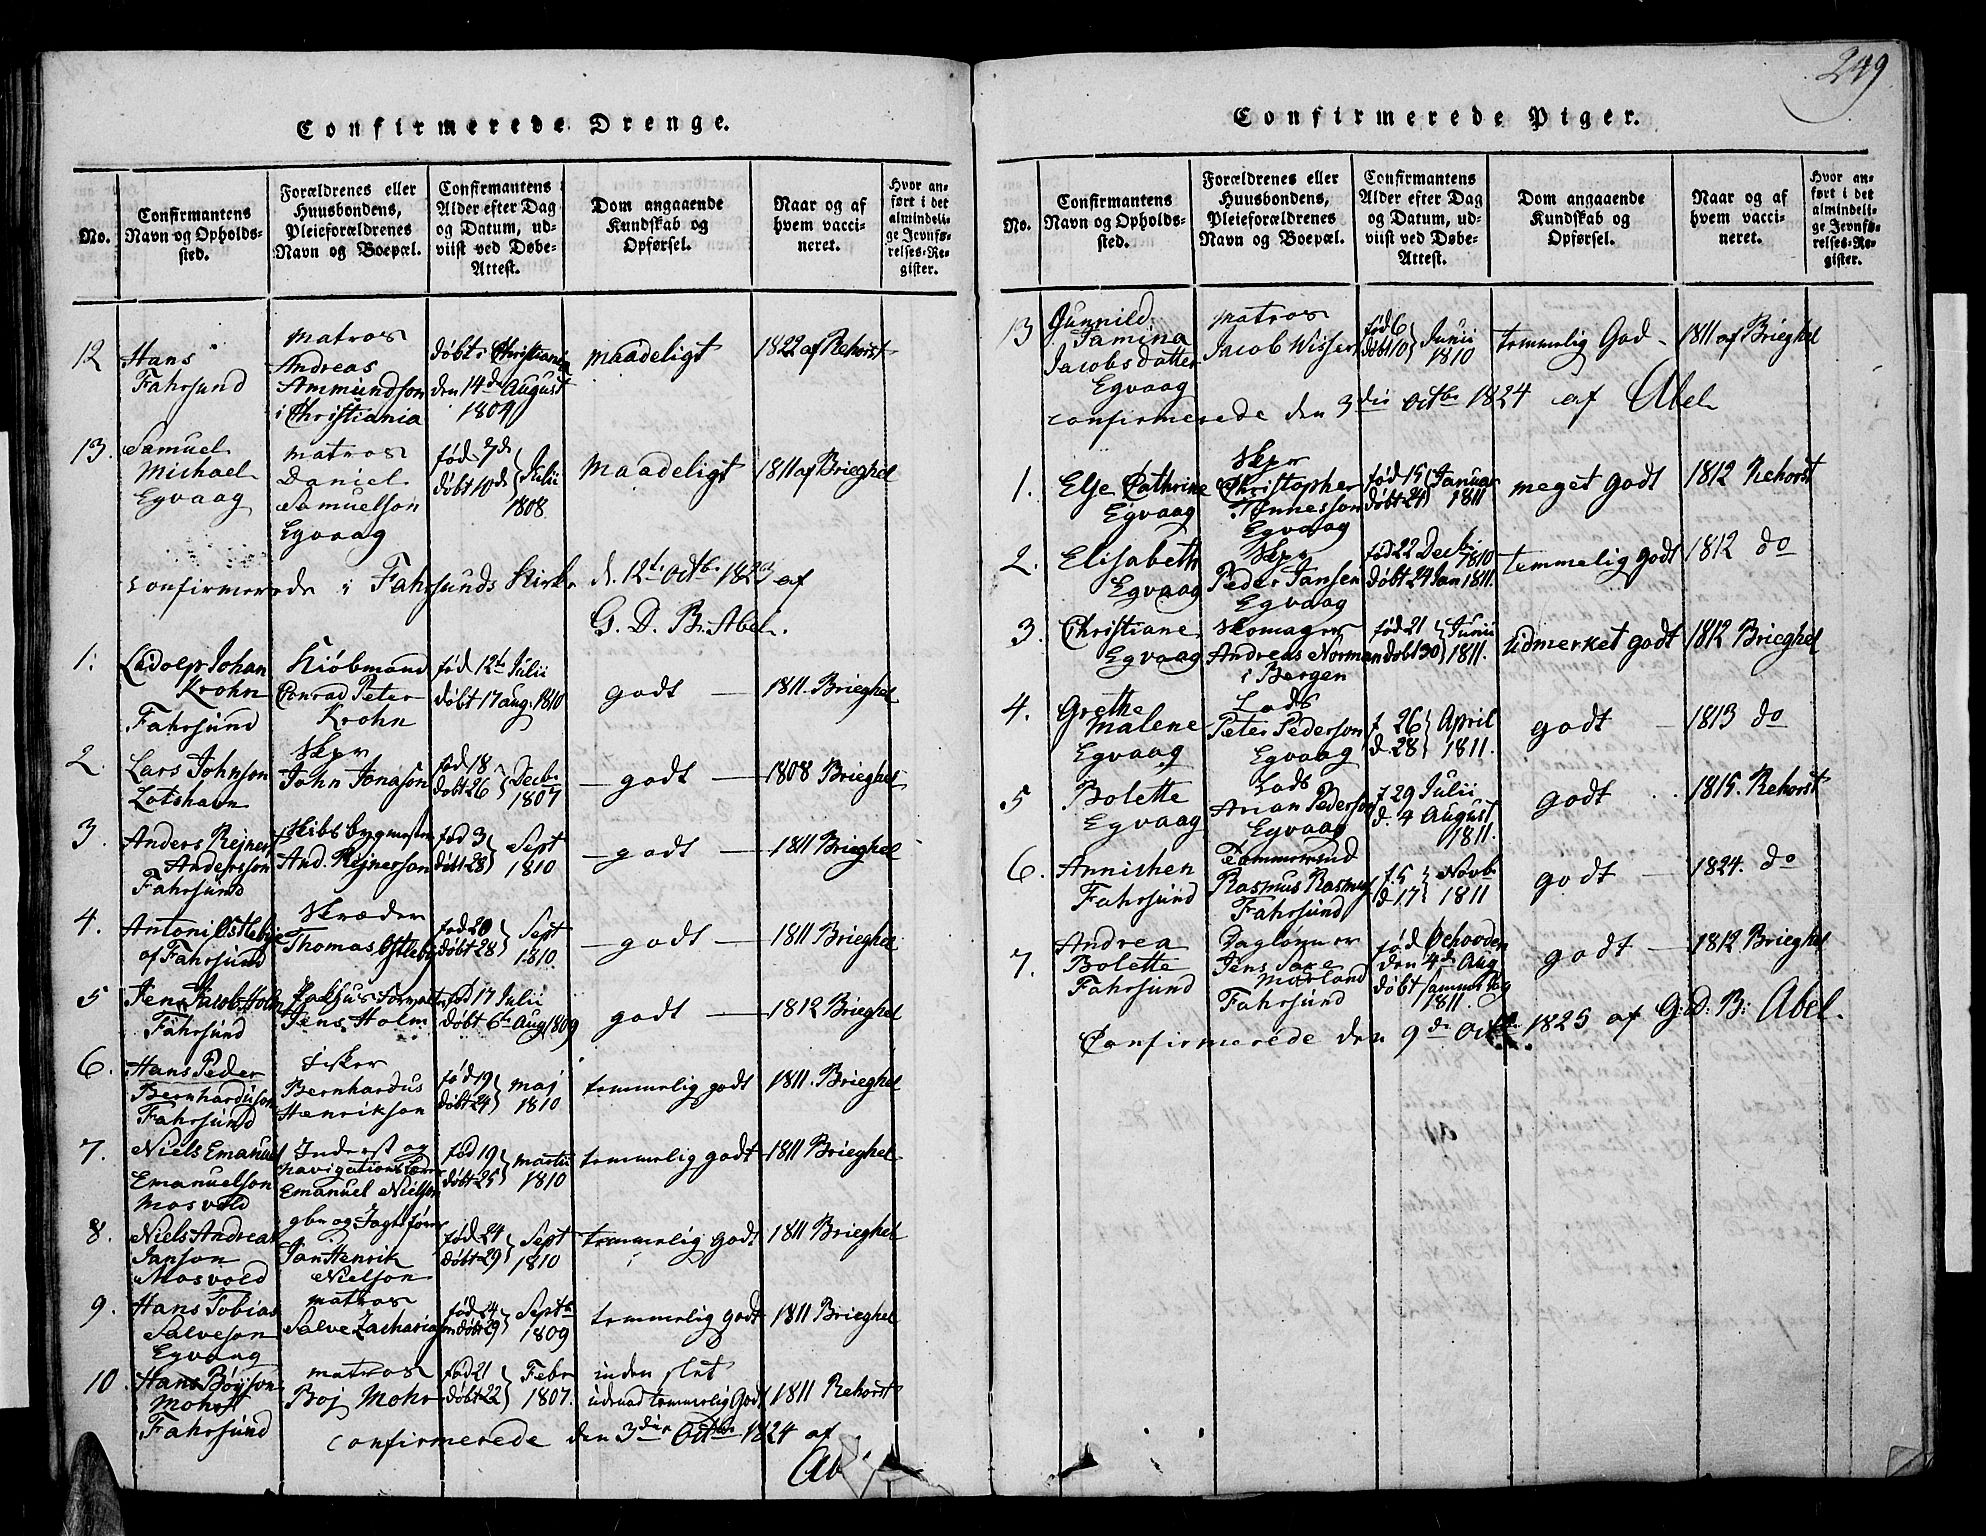 249
Confirmerede Drenge.
No.
Confirmantens Navn og Opholdssted.
Forældrenes eller Huusbondens, Pleieforældrenes Navn og Boepæl.
Confirmantens Alder efter Dag og Datum, udviist ved Døbe-Attest.
Dom angaaende Kundskab og Opførsel.
Naar og af hvem vaccineret.
Hvor anført i det almindelige Jevnførelses-Register.
12 Hans Fahrsund
matros Andreas Ammundson i Christiania
døbt i Christiania den 14de August 1809
maadeligt
1822 af Rehorst
13. Samuel Michael Egvaag
matros Daniel Samuelson Egvaag
fød 7de døbt 10de Julii 1808
maadeligt
1811 af Brieghel
confirmerede i Fahrsunds Kirke d. 12te Octbr 1823 af
G. D. B. Abel.
1. Ludolp Johan Krohn Fahrsund
Kiöbmand Conrad Peter Krohn
fød 12te Julii døbt 17 aug. 1810
godt
1811. Brieghel
2. Lars Johnson Lotshavn
Skpr John Jonason
fød 18 døbt 26 Decbr 1807
godt
1808 Brieghel
3. Anders Rejner Andersson Fahrsund
Skibsbygmester And. Rejnerson
fød 3 døbt 28 Sept 1810
godt
1811 Brieghel
4. Antoni Ostlebye af Fahrsund
Skræder Thomas Ostleby
fød 20 døbt 28 Sept 1810
godt
1811 Brieghel
5 Jens Jacob Holm Fahrsund
Jens Holm
fød 17 Julii døbt 6te Aug 1809
godt
1812 Brieghel
6. Hans Peder Bernhardüson Fahrsund
fisker Bernhardus Henrikson
fød 19 døbt 24 maj 1810
temmelig godt
1811. Brieghel
7. Niels Emanuel Emanuelson Mosvold
Inderst og navigationslærer Emanuel Nielson
fød 19 døbt 25 martii 1810
temmelig godt
1811 Brieghel
8. Niels Andreas Janson Mosvold
gbr og Jagtefører Jan Henrik Nielson
fød 24 døbt 29 Sept 1810
temmelig godt
1811 Brieghel
9. Hans Tobias Salveson Egvaag
matros Salve Zachariason
fød 24 døbt 29 Septb 1809
temmelig godt
1811 Brieghel
10. Hans Böyson Mohr Fahrsund
matros Boj Mohr
fød 21 døbt 22 Febr 1807.
inden slet udenad temmelig Godt
1811 Rehorst
confirmerede den 3die Octbr 1824 af
Ab
Confirmerede Piger.
No.
Confirmantens Navn og Opholdssted.
Forældrenes eller Huusbondens, Pleieforældrenes Navn og Boepæl.
Confirmantens Alder efter Dag og Datum, udviist ved Døbe-Attest.
Dom angaaende Kundskab og Opførsel.
Naar og af hvem vaccineret.
Hvor anført i det almindelige Jevnførelses-Register.
13 Gunnild Tamina Jacobsdatter Egvaag
matros Jacob Wisser
fød 6 døbt 10 Junii 1810
temmelig God
1811 af Brieghel
confirmerede den 3die Octbr 1824 af Abel
1. Else Cathrine Egvaag
Skpr Christopher Tønnesson Egvaag
fød 15 døbt 24 Januar 1811
meget godt
1812 Rehorst
2. Elisabeth Egvaag
Skpr Peder Jansen Egvaag
fød 22 Decbr 1810 døbt 24 Jan 1811.
temmelig godt
1812 do
3. Christiane Egvaag
Skomager Andreas Norman i Bergen
fød 21 døbt 30 Junii 1811.
udmerket godt
1812 Brieghel
4. Grethe Malene Egvaag
Lods Peter Pederson Egvaag
f. 26 d. 28 April 1811.
godt
1813 do
5 Bolette Egvaag
Lods Arian Pederson Egvaag
f. 29 Julii d. 4 August 1811.
godt
1815. Rehorst
6. Annichen Fahrsünd
Tømmermand Rasmus Rasmus Fahrsünd
f. 5 d. 17 Novb 1811
godt
1824. do
7. Andrea Bolette Fahrsünd
Daglønner Jens Saxe Morland Fahrsünd
fød den 4de Aug døbt samme Dag 1811.
godt
1812 Brieghel
Confirmerede den 9de Octbr 1825 af G. D. B: Abel.